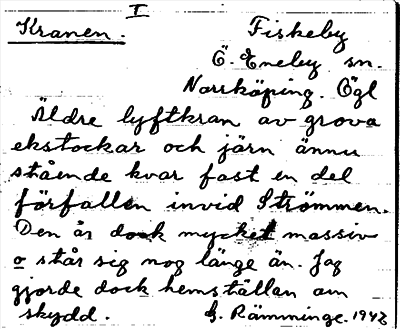 I
Kranen. Fiskeby
Ö. Eneby sn.
Norrköping. Ögl
Äldre lyftkran av grova
ekstockar och järn ännu
stående kvar fast en del
förfallen invid Strömmen.
Den är dock mycket massiv
o står sig nog länge än. Jag
gjorde dock hemställan om
skydd. G. Rämminge. 1942